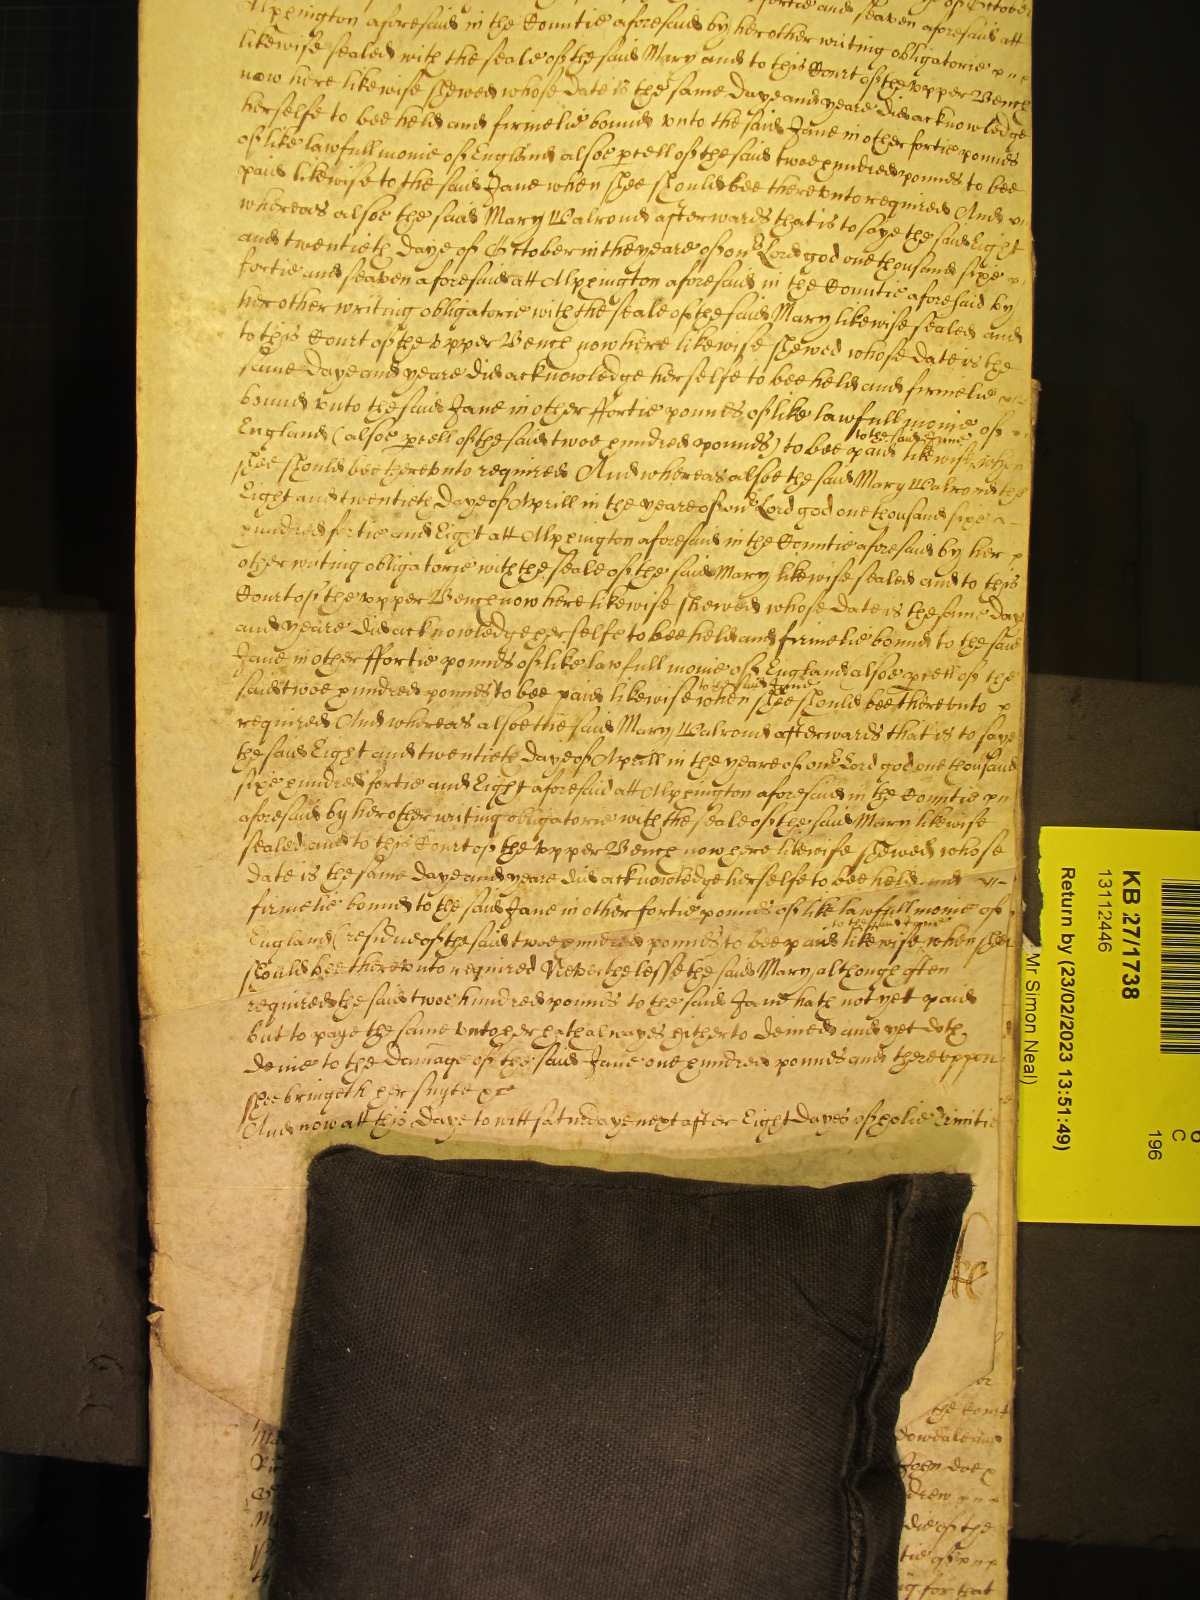 fortie and seaven aforesaid att
Alppington aforesaid in the Countie aforesaid by her other writing obligatorie
likewise sealed with the seale of the said Mary and to this Court of the vpper Bench
now here likewise shewed whose date is the same daye and yeare did acknowledge
herselfe to bee held and firmelie bound vnto the said Jane in other fortie pounds
of like lawfull monie of England alsoe pcell of the said twoe hundred pounds to bee
paid likewise to the said Jane when shee should bee therevnto required And
whereas alsoe the said Mary Walrond afterwards that is to saye the said Eight
and twentieth daye of October in the yeare of our Lord god one thousand sixe
fortie and seaven aforesaid att Alppington aforesaid in the Countie aforesaid by
her other writing obligatorie with the seale of the said Mary likewise sealed and
to this Court of the vpper Bench now here likewise shewed whose date is the
same daye and yeare did acknowledge herselfe to bee held and firmelie
bound vnto the said Jane in other ffortie pounds of like lawfull monie of
England (alsoe pcell of the said twoe hundred pounds) to bee paid to the said Jane likewise when
shee should bee therevnto required And whereas alsoe the said Mary Walrond the
Eight and twentieth daye of Aprill in the yeare of our Lord god one thousand sixe
hundred fortie and Eight att Alppington aforesaid in the Countie aforesaid by her
other writing obligatorie with the seale of the said Mary likewise sealed and to this
Court of the vpper Bench now here likewise shewed whose date is the same daye
and yeare did acknowledge herselfe to bee held and firmelie bound to the said
Jane in other ffortie pounds of like lawfull monie of England alsoe pcell of the
said twoe hundred pounds to bee paid likewise to the said Jane when shee should bee therevnto
required And whereas alsoe the said Mary Walrond afterwards that is to saye
the said Eight and twentieth daye of Aprill in the yeare of our Lord god one thousand
sixe hundred fortie and Eight aforesaid att Alppington aforesaid in the Countie
aforesaid by her other writing obligatorie with the seale of the said Mary likewise
sealed and to this Court of the vpper Bench now here likewise shewed whose
date is the same daye and yeare did acknowledge herselfe to bee held and
firmelie bound to the said Jane in other fortie pounds of like lawfull monie of
England (residue of the said twoe hundred pounds to bee paid to the said Jane likewise when shee
should bee therevnto required Neverthelesse the said Mary although often
required the said twoe hundred pounds to the said Jane hath not yett paid
but to paye the same vnto her hath alwayes hitherto denied and yet doth
denie to the damage of the said Jane one hundred pounds and therevppon
shee bringeth her suyte &c
And now att this daye to witt saturdaye next after Eight dayes of holie Trinitie
the Court
John doe
drew
die of the
for that
KB 27/1738
13112446
Return by (23/02/2023 13:51:49)
Mr Simon Neal)
C
196